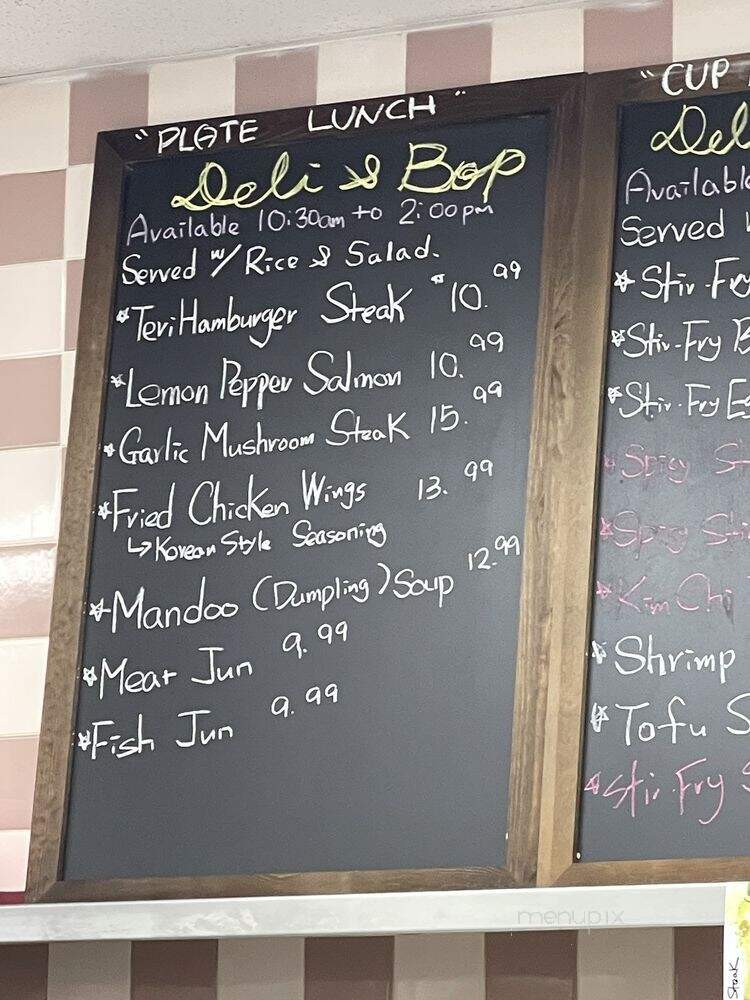 "PLATE LUNCH"
Deli & Bop
Available 10:30am to 2:00pm
Served w/ Rice & Salad.
*Teri Hamburger Steak 10.99
*Lemon Pepper Salmon 10.99
*Garlic Mushroom Steak 15.99
*Fried Chicken Wings 13.99
↳Korean Style Seasoning
*Mandoo (Dumpling) Soup 12.99
*Meat Jun 9.99
*Fish Jun 9.99
"CUP
Del
Availabl
Served
*Stir-Fry
*Stir-Fry B
*Stir-Fry Eg
*Spicy St
*Spicy Sti
*Kim Chi
*Shrimp
*Tofu S
*Stir-Fry S
menupix
Steak